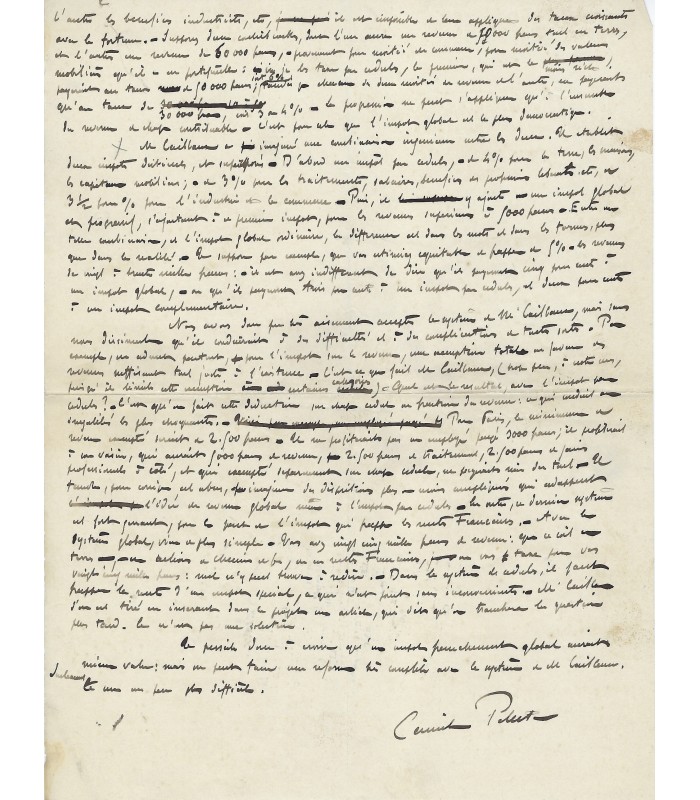 2
l'autre les bénéfices industriels, etc, il est impossible de leur appliquer des taux croissants
avec la fortune. - Supposons deux contribuables, dont l'un aura un revenu de 50000 francs tout en terres,
et l'autre un revenu de 60000 francs, provenant par moitié du commerce, par moitié des valeurs
mobilières qu'il a en portefeuille : si je les taxe par cédules, le premier, qui est le moins riche,
paiera au taux de 50000 francs, soit 5% tandis que chacune des deux moitiés du revenu de l'autre, ne paierait
qu'au taux de 30000 francs, soit 3 à 4% - La progression ne peut s'appliquer qu'à l'ensemble
du revenu de chaque contribuable - C'est par là que l'impôt global est le plus démocratique.
M. Caillaux a imaginé une combinaison ingénieuse entre les deux. Il établit
deux impôts distincts, et superposés - D'abord un impôt par cédules, - de 4% pour la terre, les maisons,
les capitaux mobiliers, - de 3% pour les traitements, salaires, bénéfices des professions libérales etc, de
3 1/2 pour % pour l'industrie et le commerce - Puis, il y ajoute - un impôt global
et progressif, s'ajoutant à ce premier impôt, pour les revenus supérieurs à 5000 francs - Entre
cette combinaison, et l'impôt global ordinaire, la différence est dans les mots et dans les termes, plus
que dans la réalité - Je suppose par exemple, que vous estimiez équitable de frapper de 5% - les revenus
de vingt à trente mille francs : - il est assez indifférent de dire qu'ils paieront cinq pour cent à
un impôt global, - ou qu'ils paieront trois pour cent à un impôt par cédules, et deux pour cent
à un impôt complémentaire.
Nous avons donc pu très aisément accepter le système de M. Caillaux, mais sans
nous dissimuler qu'il conduirait à des difficultés et à des complications de toutes sortes - Par
exemple, on admet partout, pour l'impôt sur le revenu, une exemption totale en faveur des
revenus suffisant tout juste à l'existence - C'est ce que fait M. Caillaux, (sauf, à notre avis,
puisqu'il limite cette exemption à certaines catégories) - Quel est le résultat, avec l'impôt par
cédules ? C'est qu'on fait cette déduction sur chaque cédule ou fraction du revenu : ce qui conduit aux
inégalités les plus choquantes. - Pour Paris, le minimum de
revenu exempté serait de 2.500 francs - Il ne profiterait pas à un employé payé 3000 francs ; il profiterait
à son voisin, qui aurait 5000 francs de revenu, 2.500 francs de traitement, 2.500 francs de gains
professionnels à côté, et qui exempté séparément sur chaque cédule, ne paierait rien du tout - Il
faudra, pour corriger cet abus, imaginer des dispositions plus ou moins compliquées qui adapteront
l'idée du revenu global à l'impôt par cédules - En outre, ce dernier système
est fort gênant, pour la part de l'impôt qui frappe les rentes françaises - Avec le
système global, rien de plus simple - Vous avez vingt cinq mille francs de revenu : que ce soit en
terres - en actions de chemins de fer, ou en rentes françaises, on vous taxe pour vos
vingt cinq mille francs : nul ne peut trouver à redire. - Dans le système des cédules, il faut
frapper la rente d'un impôt spécial, ce qui n'est point sans inconvénients - M. Caillaux
s'en est tiré en insérant dans le projet un article, qui dit qu'on tranchera la question
plus tard. Ce n'est pas une solution.
Je persiste donc à croire qu'un impôt franchement global aurait
mieux valu : mais on peut faire une réforme très complète avec le système de M. Caillaux.
Seulement
ce sera un peu plus difficile.
Camille Pelletan